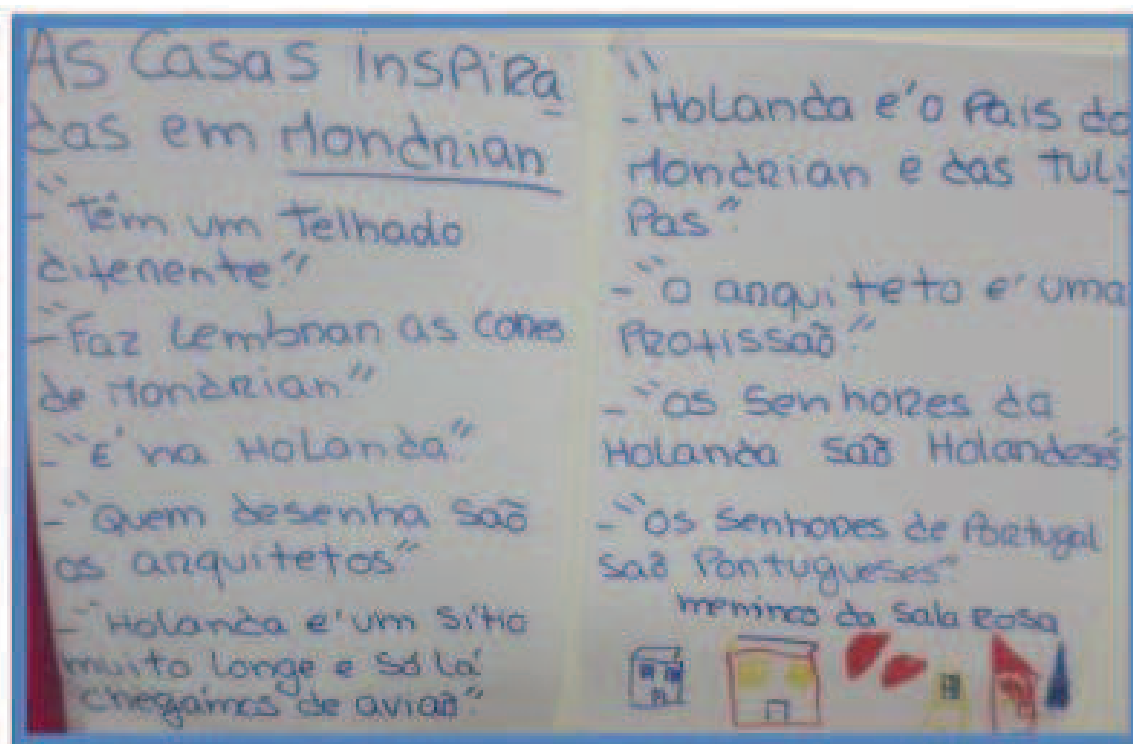 As Casas inspira
das em Mondrian
- "Têm um telhado
diferente."
- "Faz lembrar as cores
de Mondrian"
- "É na Holanda"
- "Quem desenha são
os arquitetos"
- "Holanda é um sítio
muito longe e só lá
chegamos de avião."
- "Holanda é o País do
Mondrian e das Tuli
Pas".
- "O arquiteto é uma
Profissão."
- "Os Senhores da
Holanda são Holandeses"
- "Os Senhores de Portugal
são Portugueses".
meninos da Sala Rosa